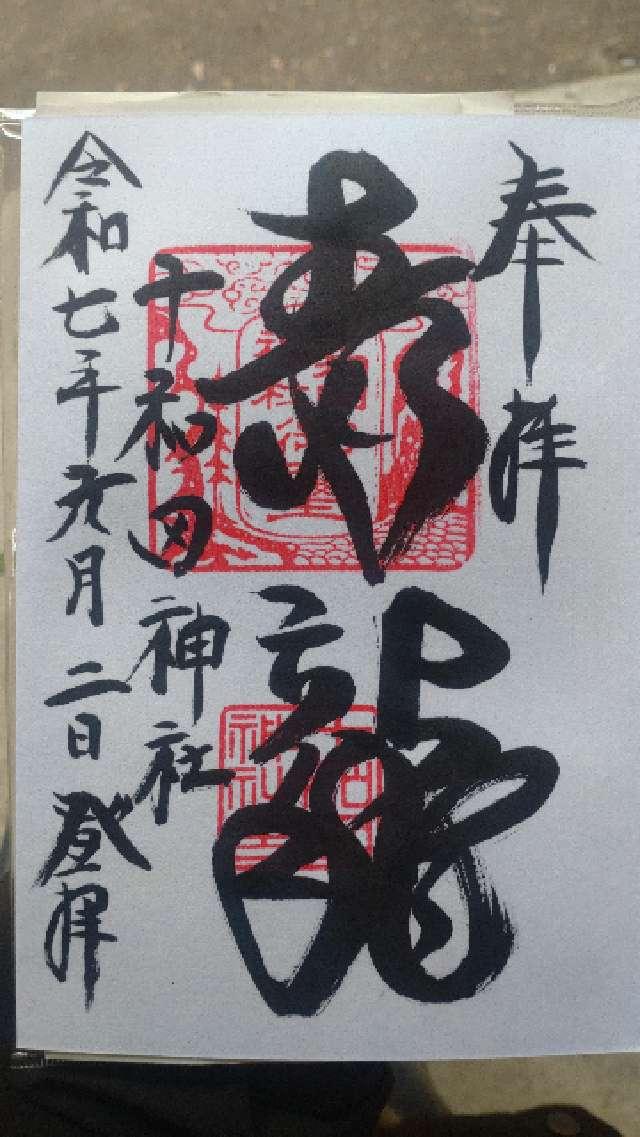 奉拝
青龍
十和田神社
令和七年六月二日登拝